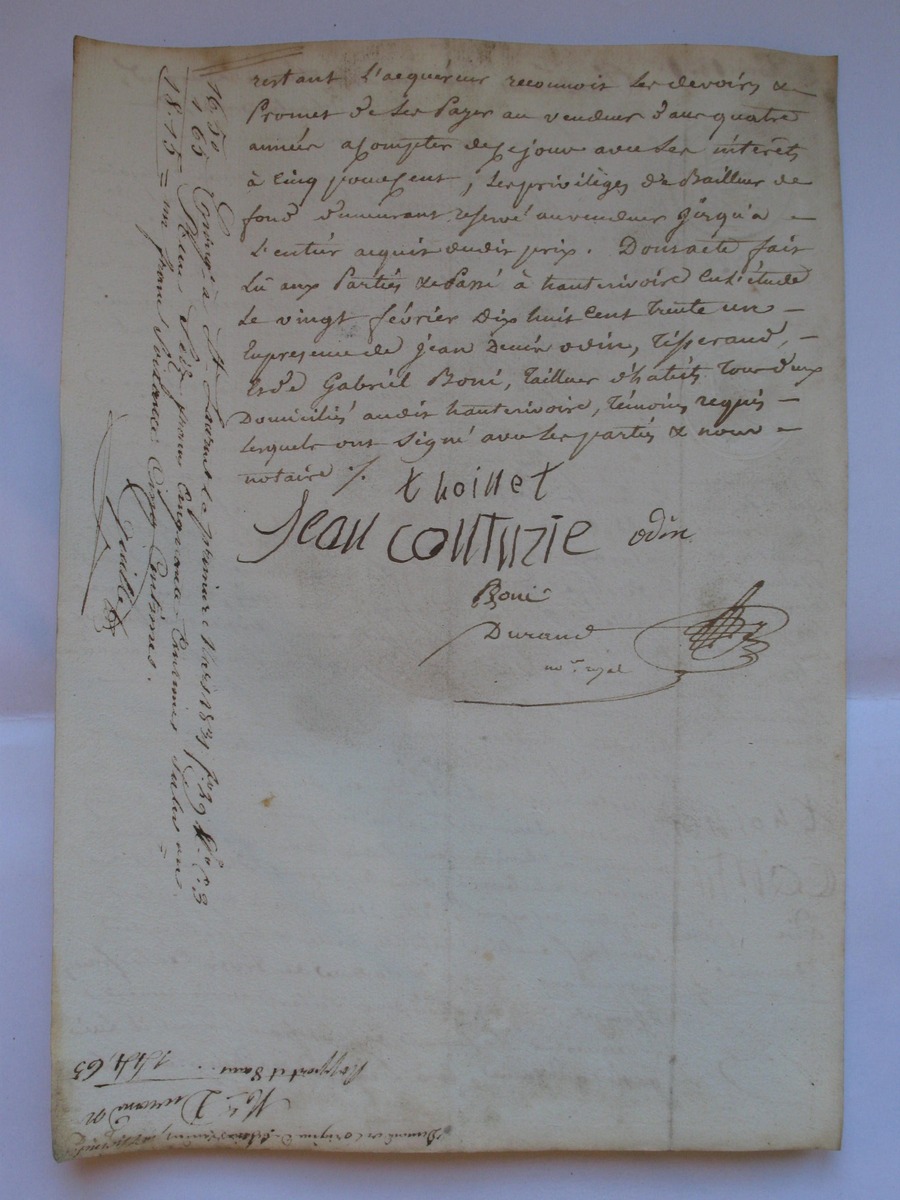 restant l'acquéreur reconnoit les devoirs &
Promet de les Payer au vendeur dans quatre
années a Compter de ce jour avec les intérêts
à Cinq pour Cent, les privilèges de Bailleur de
fond demeurant réservé au vendeur jusqu'a
l'entier acquit dudit prix. Dont acte fait
Lû aux Parties & Passé à hauterivoire En l'étude
Le vingt février Dix huit Cent trente un
En présence de jean Denis odin, Tisserand,
Et de Gabriel Boni, Tailleur d'habits Tous deux
Domiciliés audit hauterivoire, témoins requis
Lesquels ont Signé avec les parties & nous
notaire /.
thoillet
Jean Conturie odin
Boni
Durand
no.re royal
16 50
1 65
18 15
Enrégé à St Laurent le premier Mars 1831 fo 29 Ro C. 3
Reçu Seize francs Cinquante Centimes
un franc Soixante Cinq Centimes.
Rapport et 144,63
Me Durand